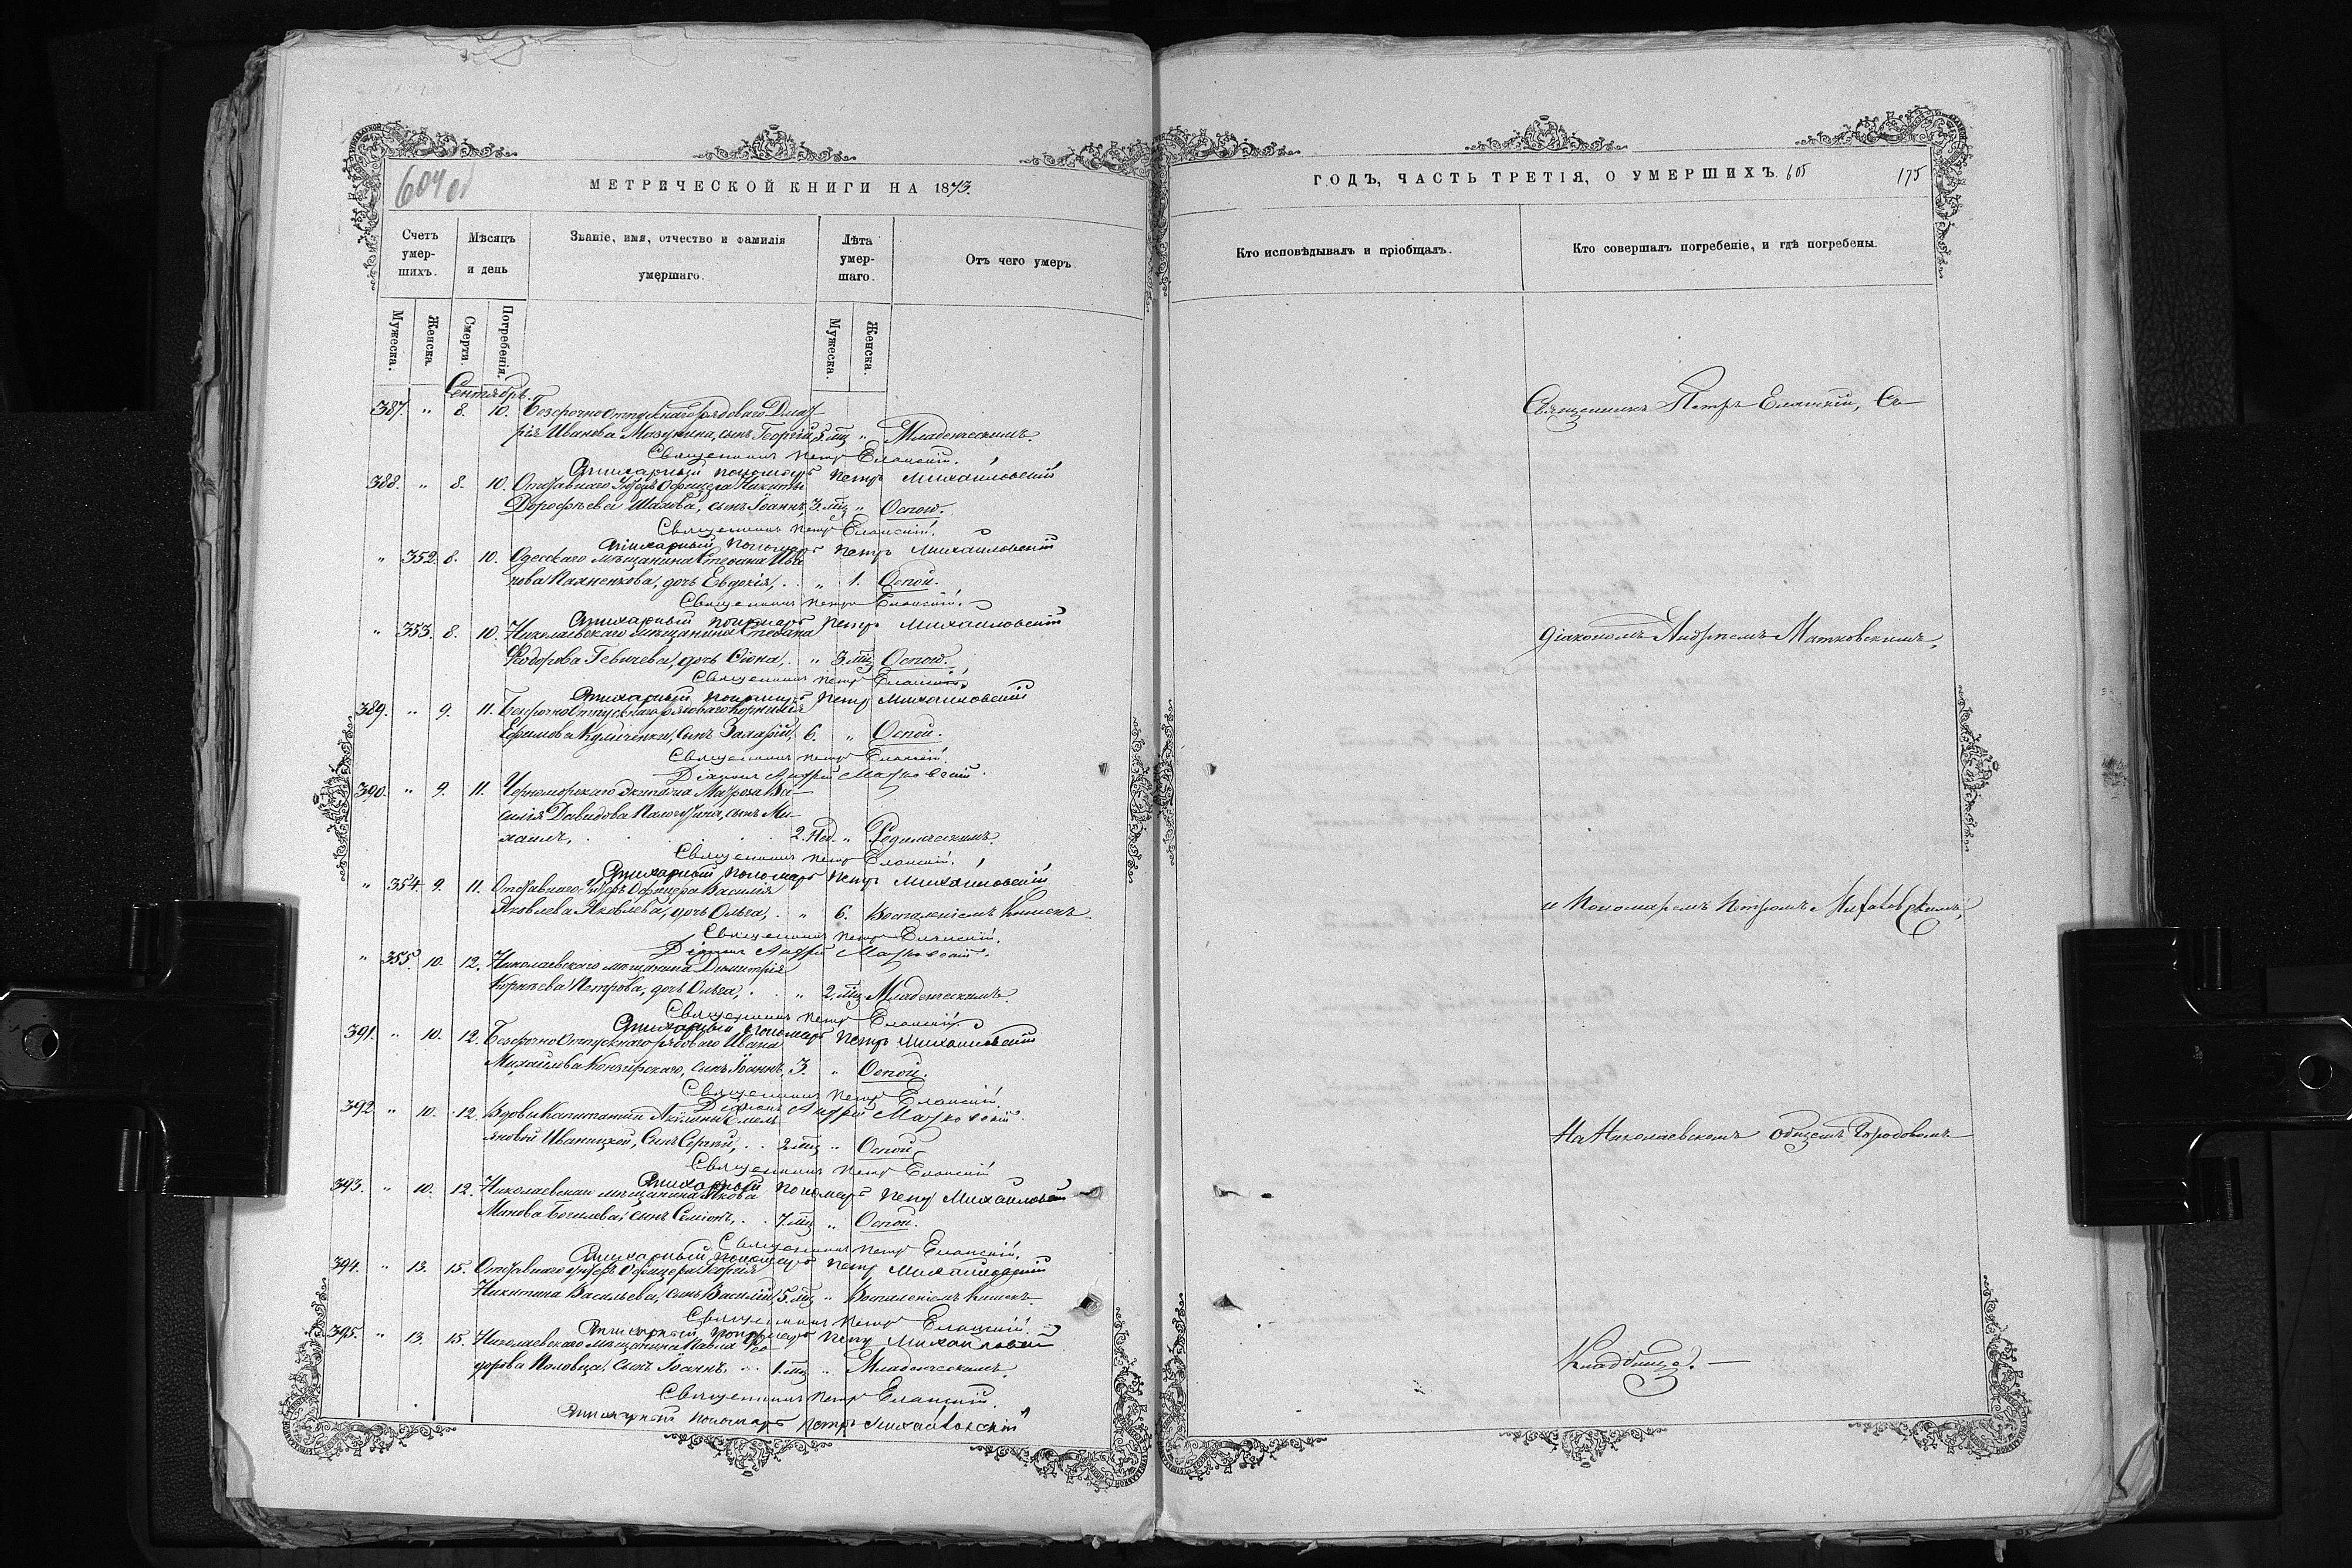 604 об
МЕТРИЧЕСКОЙ КНИГИ НА 1873.
Счетъ умер-шихъ.
Мѣсяцъ и день
Званіе, имя, отчество и фамилія умершаго.
Лѣта умер-шаго.
Отъ чего умеръ
Мужеска.
Женска.
Смерти
Погребенія.
Мужеска.
Женска.
Сентябрь.
387. " 8. 10. Безсрочноотпускнаго рядоваго Дмит-
рія Иванова Мазукина, сынъ Георгій, 5. мц " Младенческимъ.
Священникъ Петръ Еланскій.
Стихарный пономарь Петръ Михайловскій
388. " 8. 10. Отставнаго Унтеръ Офицера Никиты
Дорофѣева Шахова, сынъ Іоаннъ, 3. мц " Оспою.
Священникъ Петръ Еланскій.
Стихарный пономарь Петръ Михайловскій
" 352. 8. 10. Одесскаго мѣщанина Стефана Ива-
нова Пахненкова, дочь Евдокія, . " 1. Оспой.
Священникъ Петръ Еланскій.
Стихарный пономарь Петръ Михайловскій
" 353. 8. 10. Николаевскаго мѣщанина Стефана
Ѳедорова Гевичева, дочь . " 3. мц Оспою.
Священникъ Петръ Еланскій.
Стихарный пономарь Петръ Михайловскій
389. " 9. 11. Безсрочноотпускнаго рядоваго Корнилія
Ефимова Куличенки, сынъ Захарій, 6. " Оспой.
Священникъ Петръ Еланскій.
Діаконъ Андрей Матковскій.
390. " 9. 11. Черноморскаго экипажа Матроза Ва-
силія Давидова, сынъ Ми-
хаилъ, . . . 2. Нед. " Родимческимъ.
Священникъ Петръ Еланскій.
Стихарный пономарь Петръ Михайловскій
" 354. 9. 11. Отставнаго Унтеръ Офицера Василія
Яковлева Яковлева, дочь Ольга, . " 6. Воспаленіемъ кишекъ.
Священникъ Петръ Еланскій.
Діаконъ Андрей Матковскій.
" 355. 10. 12. Николаевскаго мѣщанина Димитрія
Корнѣева Петрова, дочь Ольга, . . " 2. мц Младенческимъ.
Священникъ Петръ Еланскій.
Стихарный пономарь Петръ Михайловскій
391. " 10. 12. Безсрочноотпускнаго рядоваго Ивана
Михайлова, сынъ Іоаннъ, 3. " Оспой.
Священникъ Петръ Еланскій.
Діаконъ Андрей Матковскій.
392. " 10. 12. Вдовы Капитанши Акулины Емель-
яновой Иваницкой, сынъ Сергій, . . 2 мц " Оспой.
Священникъ Петръ Еланскій
Стихарный пономарь Петръ Михайловскій
393. " 10. 12. Николаевскаго мѣщанина Якова
Минова, сынъ Семіонъ, . . 7. мц " Оспой.
Священникъ Петръ Еланскій.
Стихарный пономарь Петръ Михайловскій
394. " 13. 15. Отставнаго Унтеръ Офицера Георгія
Никитина Васильева, сынъ Василій, 5. мц " Воспаленіемъ кишекъ.
Священникъ Петръ Еланскій.
Стихарный пономарь Петръ Михайловскій
395. " 13. 15. Николаевскаго мѣщанина Павла Ѳео-
дорова Половца, сынъ Іоаннъ. . . 1. мц " Младенческимъ.
Священникъ Петръ Еланскій.
Стихарный пономарь Петръ Михайловскій
ГОДЪ, ЧАСТЬ ТРЕТІЯ, О УМЕРШИХЪ. 605
175
Кто исповѣдывалъ и пріобщалъ.
Кто совершалъ погребеніе, и гдѣ погребены.
Священникъ Петръ Еланскій, Съ
діакономъ Андреемъ Матковскимъ,
и Пономаремъ Петромъ Михайловскимъ,
На Николаевскомъ общемъ Городовомъ
Кладбищѣ. —